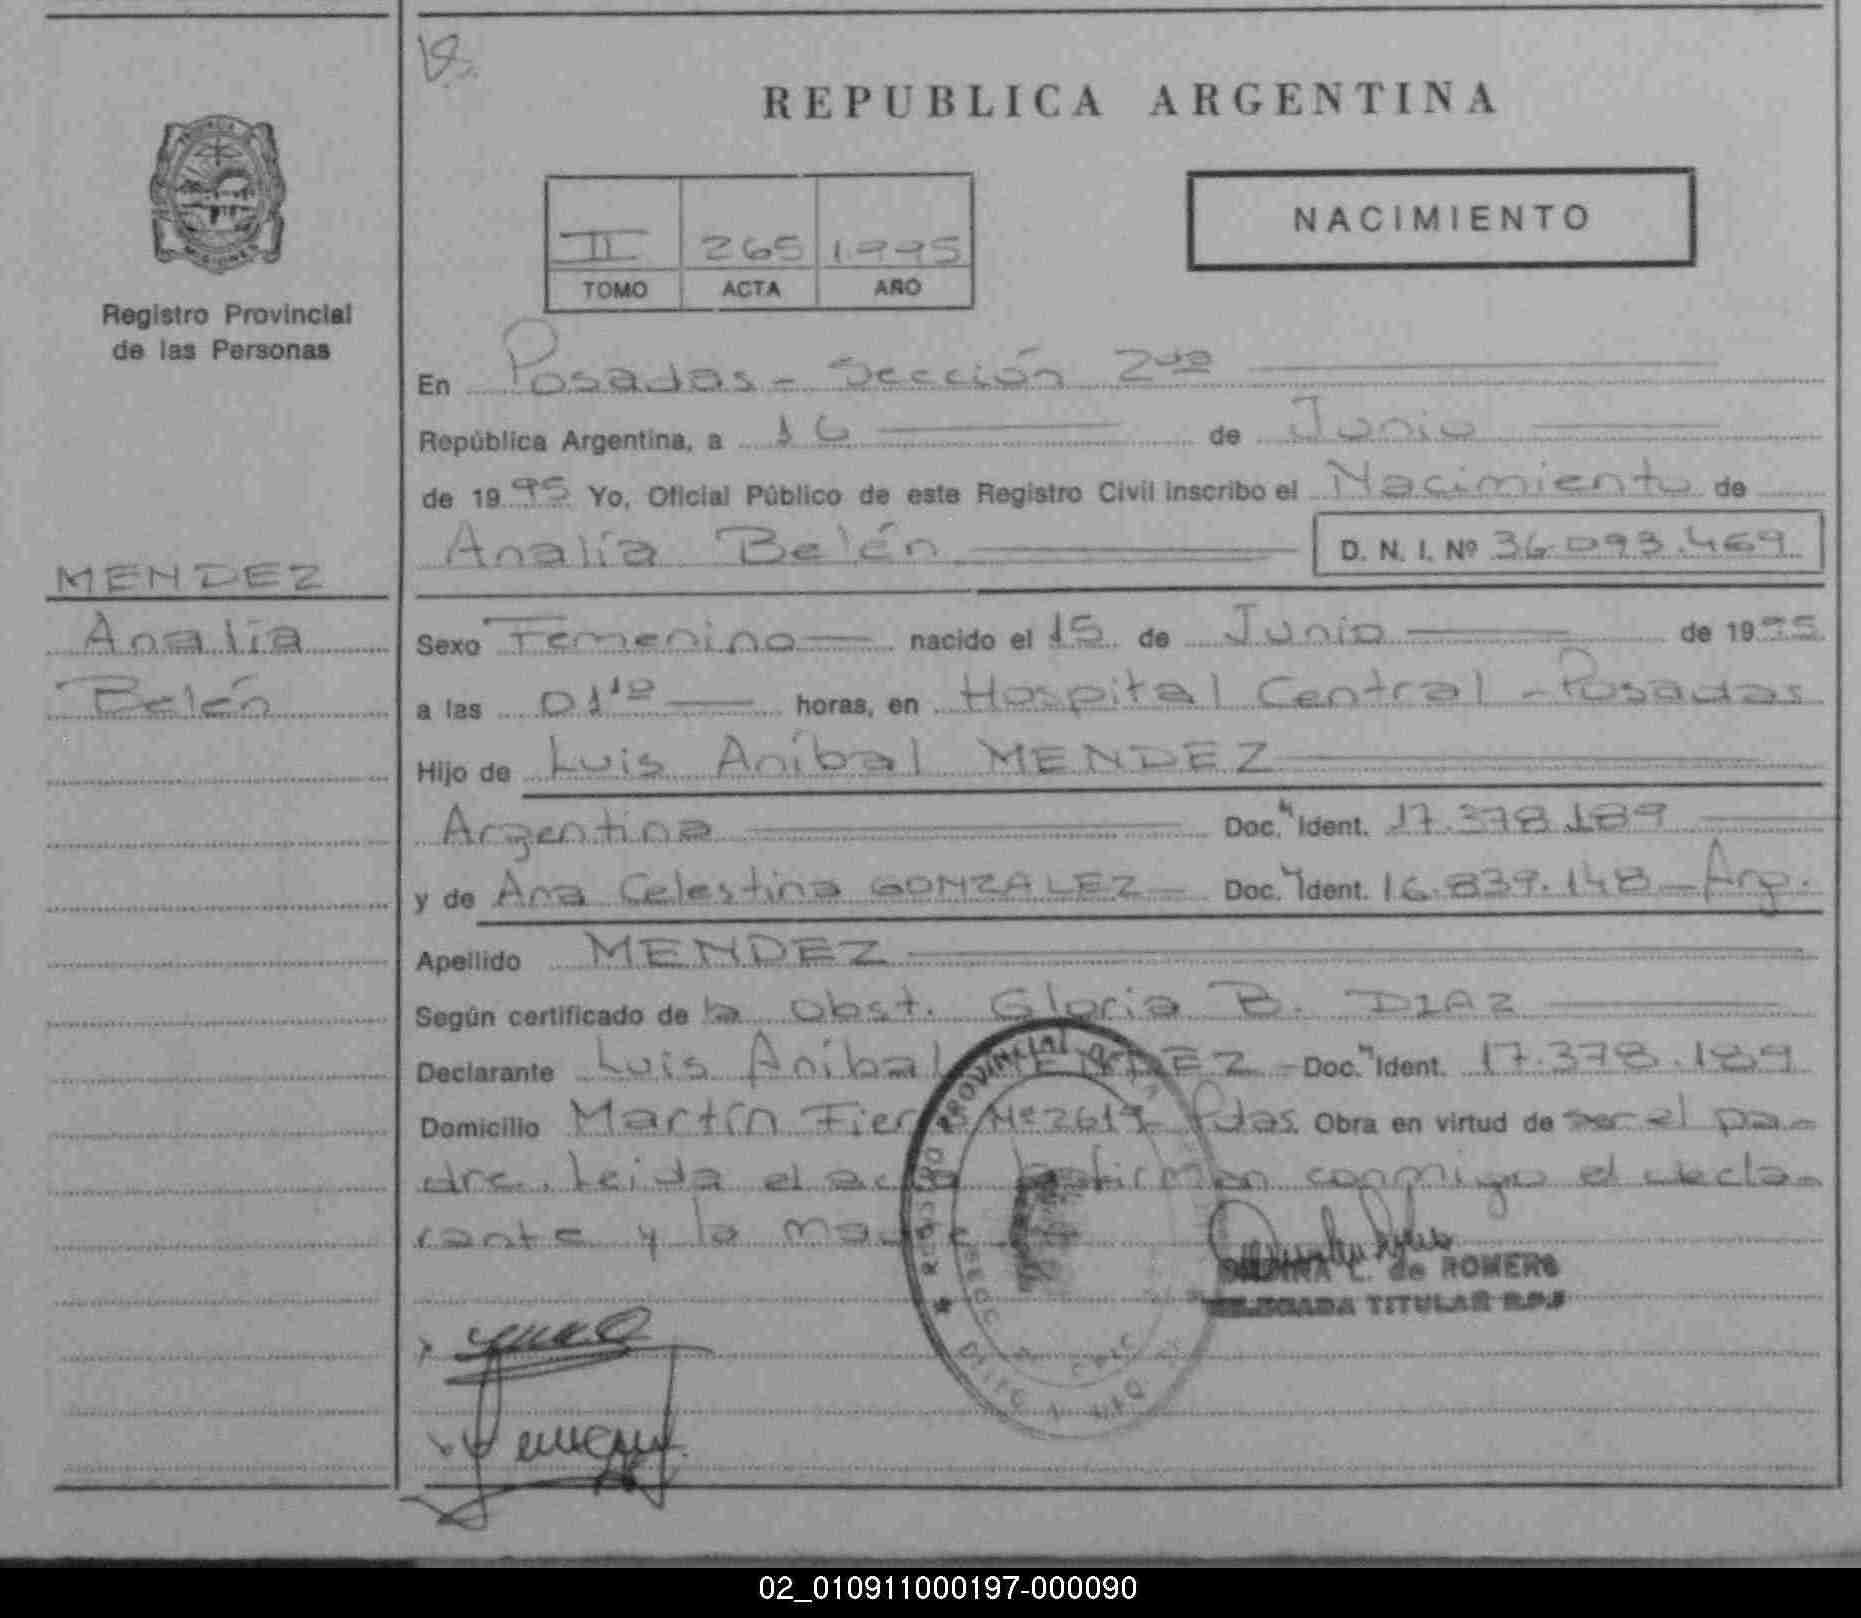 REPUBLICA ARGENTINA
NACIMIENTO
II 265 1.995
TOMO ACTA AÑO
Registro Provincial
de las Personas
En Posadas - Sección 2da
República Argentina, a 16 de Junio
de 1995 Yo, Oficial Público de este Registro Civil inscribo el Nacimiento de
Analía Belén D. N. I. Nº 36.093.469
MENDEZ
Analía
Belén
Sexo Femenino nacido el 15 de Junio de 1995
a las 01 10 horas, en Hospital Central - Posadas
Hijo de Luis Aníbal MENDEZ
Argentina Doc. Ident. 17.378.189
y de Ana Celestina GONZALEZ Doc. Ident. 16.839.148 - Arg.
Apellido MENDEZ
Según certificado de la Obst. Gloria B. DIAZ
Declarante Luis Aníbal MENDEZ - Doc. Ident. 17.378.189
Domicilio Martín Fierro Nº 2617 - Pdas. Obra en virtud de ser el pa-
dre. Leida el acta la firman conmigo el decla-
rante y la madre
REGISTRO PROVINCIAL DE LAS
L. de ROMERO
DELEGADA TITULAR R.P.P
02_010911000197-000090